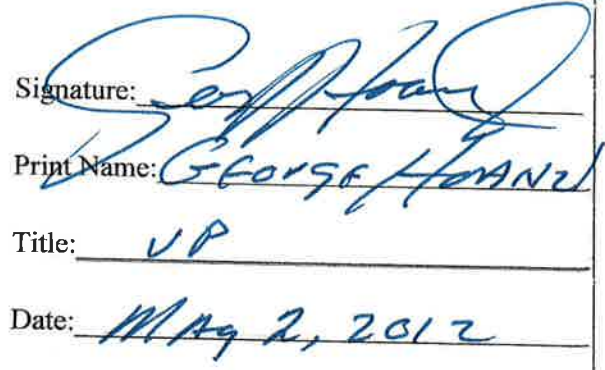 Signature:
Print Name: GEORGE HOANZL
Title: VP
Date: MAy 2, 2012